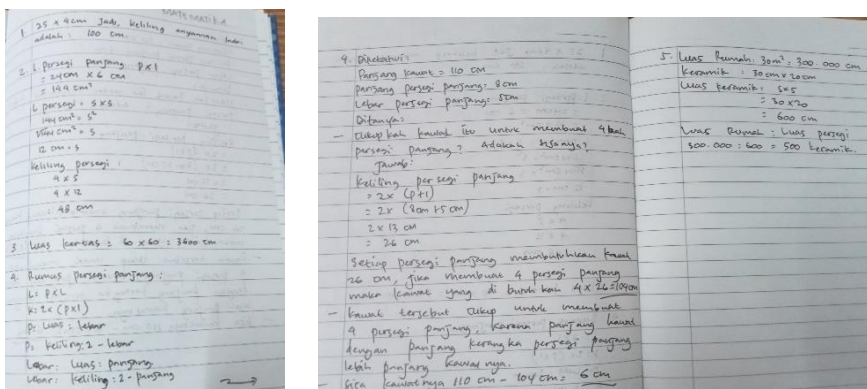 MATEMATIKA
1. 25 x 4 cm Jadi, keliling anyaman Indo.
adalah : 100 cm.
2. L persegi panjang P x l
= 24 cm x 6 cm
= 144 cm²
L persegi = s x s
144 cm² = s²
√144 cm² = s
12 cm = s
Keliling persegi :
4 x s
4 x 12
= 48 cm
3 Luas kertas = 60 x 60 = 3600 cm
4. Rumus persegi panjang :
L = P x L
K = 2x (P x l)
P = Luas : lebar
P = keliling : 2 - lebar
Lebar : Luas : panjang
Lebar : keliling : 2 - panjang
4. Diketahui :
Panjang kawat = 110 cm
panjang persegi panjang : 8 cm
Lebar persegi panjang : 5 cm
Ditanya :
- Cukupkah kawat itu untuk membuat 4 buah
persegi panjang ? Adakah sisanya ?
Jawab :
Keliling persegi panjang
= 2x (P + l)
= 2x (8 cm + 5 cm)
2 x 13 cm
= 26 cm
Setiap persegi panjang membutuhkan kawat
26 cm, jika membuat 4 persegi panjang
maka kawat yang di butuhkan 4 x 26 = 104 cm
- kawat tersebut cukup untuk membuat
4 persegi panjang, karena panjang kawat
dengan panjang kerangka persegi panjang
lebih panjang kawat nya.
- Sisa kawatnya 110 cm - 104 cm = 6 cm
5. Luas Rumah : 30 m² = 300.000 cm
Keramik : 30 cm x 20 cm
Luas keramik : s x s
= 30 x 20
= 600 cm
Luas Rumah : Luas persegi
300.000 : 600 = 500 keramik.